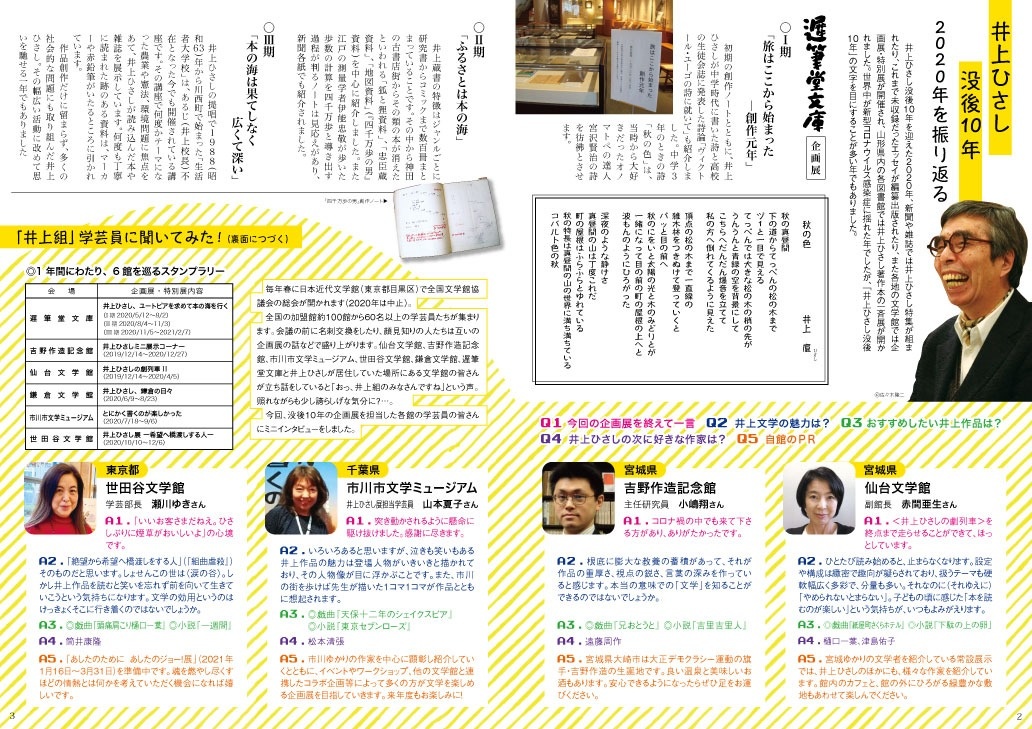 井上ひさし
没後10年
2020年を振り返る
井上ひさし没後10年を迎えた2020年、新聞や雑誌では井上ひさし特集が組ま
れたり、これまで未収録だったエッセイが編纂出版されたり、また各地の文学館では企
画展・特別展が開催され、山形県内の各図書館では井上ひさし著作本の一斉展が開か
れました。世界中が新型コロナウイルス感染症に揺れた年でしたが、「井上ひさし没後
10年」の文字を目にすることが多い年でもありました。
©佐々木隆二
遅筆堂文庫 企画展
〇Ⅰ期
「旅はここから始まった
―創作元年」
初期の創作ノートとともに、井上
ひさしが中学時代に書いた詩と高校
の生徒会誌に発表した詩論「ヴィクト
ール・ユーゴの詩に就いて」も紹介しま
した。中学3
年のときの詩
「秋の色」は、
当時から大好
きだったオノ
マトペの達人
宮沢賢治の詩
を彷彿とさせ
ます。
旅はここから始まった
創作元年
秋の色
井上 廈
ひさし
秋の真昼間
下の道からてっぺんの松の木まで
ヅーと一目で見える
てっぺんでは大きな松の木の梢の先が
うんうんと青緑の空を背景にして
こちらへだんだん爆音を立てて
私の方へ倒れてくるように見えた
頂点の松の木まで一直線の
雑木林をつきぬけて登っていくと
パッと目の前へ
秋のにをいと太陽の光と木のみどりとが
一緒になって目の前の町の屋根の上へと
波もんのようにひろがった
深夜のような静けさ
真昼間の山は丁度これだ
町の屋根はふらふらとゆれている
秋の特長は真昼間の山の世界に満ち満ちている
コバルト色の秋
〇Ⅱ期
「ふるさとは本の海」
井上蔵書の特徴はジャンルごとに
研究書からコミックまで数百冊まと
まっていることです。その中から神田
の古書店街からその類の本が消えた
といわれる、狐と狸資料、「忠臣蔵
資料」、「地図資料」(『四千万歩の男』
資料)を中心に紹介しました。また
江戸の測量学者伊能忠敬が歩いた
歩数の計算を四千万歩と導き出す
過程が判るノートは見応えがあり、
新聞各紙でも紹介されました。
「四千万歩の男」創作ノート▶
〇Ⅲ期
「本の海は果てしなく
広くて深い」
井上ひさしの提唱で1988(昭
和63)年から川西町で始まった、「生活
者大学校」は、あるじ(井上校長)不
在となった今でも開催されている講
座です。その講座で何度かテーマにな
った農業や憲法、環境問題に焦点を
あて、井上ひさしが読み込んだ本や
雑誌を展示しています。何度も丁寧
に読まれた跡のある資料は、マーカ
ーや赤鉛筆がいたるところに引かれ
ています。
作品創作だけに留まらず、多くの
社会的な問題にも取り組んだ井上
ひさし。その幅広い活動に改めて思
いを馳せる一年でもありました
「井上組」学芸員に聞いてみた!(裏面につづく)
◎1年間にわたり、6館を巡るスタンプラリー
会 場 企画展・特別展内容
遅筆堂文庫 井上ひさし、ユートピアを求めて本の海を行く
(Ⅰ期 2020/5/12~8/2)
(Ⅱ期 2020/8/4~11/3)
(Ⅲ期 2020/11/5~2021/2/7)
吉野作造記念館 井上ひさしミニ展示コーナー
(2019/12/14~2020/12/27)
仙台文学館 井上ひさしの劇列車Ⅱ
(2019/12/14~2020/4/5)
鎌倉文学館 井上ひさし、鎌倉の日々
(2020/6/9~8/23)
市川市文学ミュージアム とにかく書くのが楽しかった
(2020/7/18~9/6)
世田谷文学館 井上ひさし展 ―希望へ橋渡しする人―
(2020/10/10~12/6)
毎年春に日本近代文学館(東京都目黒区)で全国文学館協
議会の総会が開かれます(2020年は中止)。
全国の加盟館約100館から60名以上の学芸員たちが集まり
ます。会議の前に名刺交換をしたり、顔見知りの人たちは互いの
企画展の話などで盛り上がります。仙台文学館、吉野作造記念
館、市川市文学ミュージアム、世田谷文学館、鎌倉文学館、遅筆
堂文庫と井上ひさしが居住していた場所にある文学館の皆さん
が立ち話をしていると「おっ、井上組のみなさんですね」という声。
照れながらも少し誇らしげな気分に?…。
今回、没後10年の企画展を担当した各館の学芸員の皆さん
にミニインタビューをしました。
Q1 今回の企画展を終えて一言 Q2 井上文学の魅力は? Q3 おすすめしたい井上作品は?
Q4 井上ひさしの次に好きな作家は? Q5 自館のPR
東京都
世田谷文学館
学芸部長 瀬川ゆきさん
A1.「いいお客さまだねえ。ひさ
しぶりに煙草がおいしいよ」の心境
です。
A2.「絶望から希望へ橋渡しをする人」(『組曲虐殺』)
そのものだと思います。しょせんこの世は〈涙の谷〉。し
かし井上作品を読むと笑いを忘れず前を向いて生きて
いこうという気持ちになります。文学の効用というのは
けっきょくそこに行き着くのではないでしょうか。
A3.◎戯曲『頭痛肩こり樋口一葉』 ◎小説『一週間』
A4.筒井康隆
A5.「あしたのために あしたのジョー!展」(2021年
1月16日~3月31日)を準備中です。魂を燃やし尽くす
ほどの情熱とは何かを考えていただく機会になれば嬉
しいです。
千葉県
市川市文学ミュージアム
井上ひさし展担当学芸員 山本夏子さん
A1.突き動かされるように懸命に
駆け抜けました。感謝に尽きます。
A2.いろいろあると思いますが、泣きも笑いもある
井上作品の魅力は登場人物がいきいきと描かれて
おり、その人物像が目に浮かぶことです。また、市川
の街を歩けば先生が描いた1コマ1コマが作品ととも
に想起されます。
A3.◎戯曲『天保十二年のシェイクスピア』
◎小説『東京セブンローズ』
A4.松本清張
A5.市川ゆかりの作家を中心に顕彰し紹介してい
くとともに、イベントやワークショップ、他の文学館と連携
したコラボ企画等によって多くの方が文学を楽しめ
る企画展を目指していきます。来年度もお楽しみに!
宮城県
吉野作造記念館
主任研究員 小嶋翔さん
A1.コロナ禍の中でも来て下さ
る方があり、ありがたかったです。
A2.根底に膨大な教養の蓄積があって、それが
作品の重厚さ、視点の鋭さ、言葉の深みを作ってい
ると感じます。本当の意味での「文学」を知ることが
できるのではないでしょうか。
A3.◎戯曲『兄おとうと』 ◎小説『吉里吉里人』
A4.遠藤周作
A5.宮城県大崎市は大正デモクラシー運動の旗
手・吉野作造の生誕地です。良い温泉と美味しいお
酒もあります。安心できるようになったらぜひ足をお運
びください。
宮城県
仙台文学館
副館長 赤間亜生さん
A1.<井上ひさしの劇列車>を
終点まで走らせることができて、ほっ
としています。
A2.ひとたび読み始めると、止まらなくなります。設定
や構成は緻密で趣向が凝らされており、扱うテーマも硬
軟幅広く多彩で、分量も多い。それなのに(それゆえに)
「やめられないとまらない」。子どもの頃に感じた「本を読
むのが楽しい」という気持ちが、いつもよみがえります。
A3.◎戯曲『紙屋町さくらホテル』 ◎小説『下駄の上の卵』
A4.樋口一葉、津島佑子
A5.宮城ゆかりの文学者を紹介している常設展示
では、井上ひさしのほかにも、様々な作家を紹介してい
ます。館内のカフェと、館の外にひろがる緑豊かな敷
地もあわせて楽しんでください。
3
2